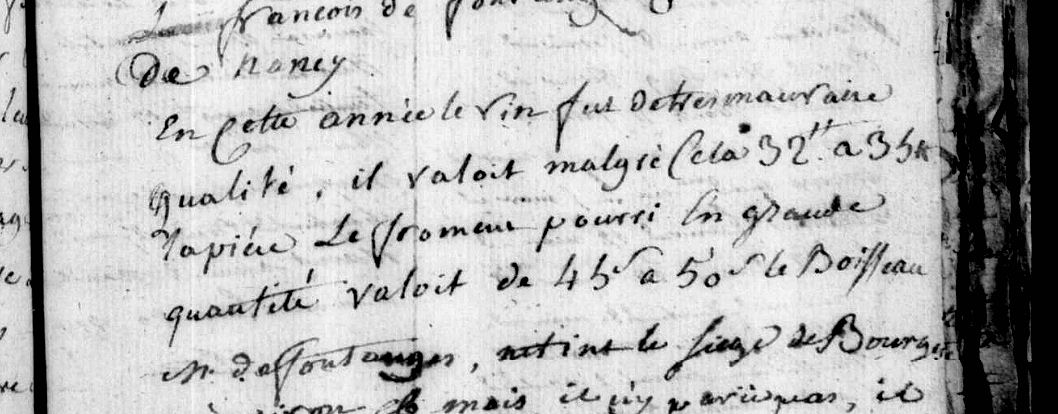 françois de fontang
de nancy
En Cette année le vin fut detres mauvaise
qualité, il valoit malgré Cela 32tt a 35tt
lapiéce Le froment pourri En grande
quantité valoit de 45s a 50s le Boisseau
Mr. de fontanges, nétint le siege de Bourges
mois il